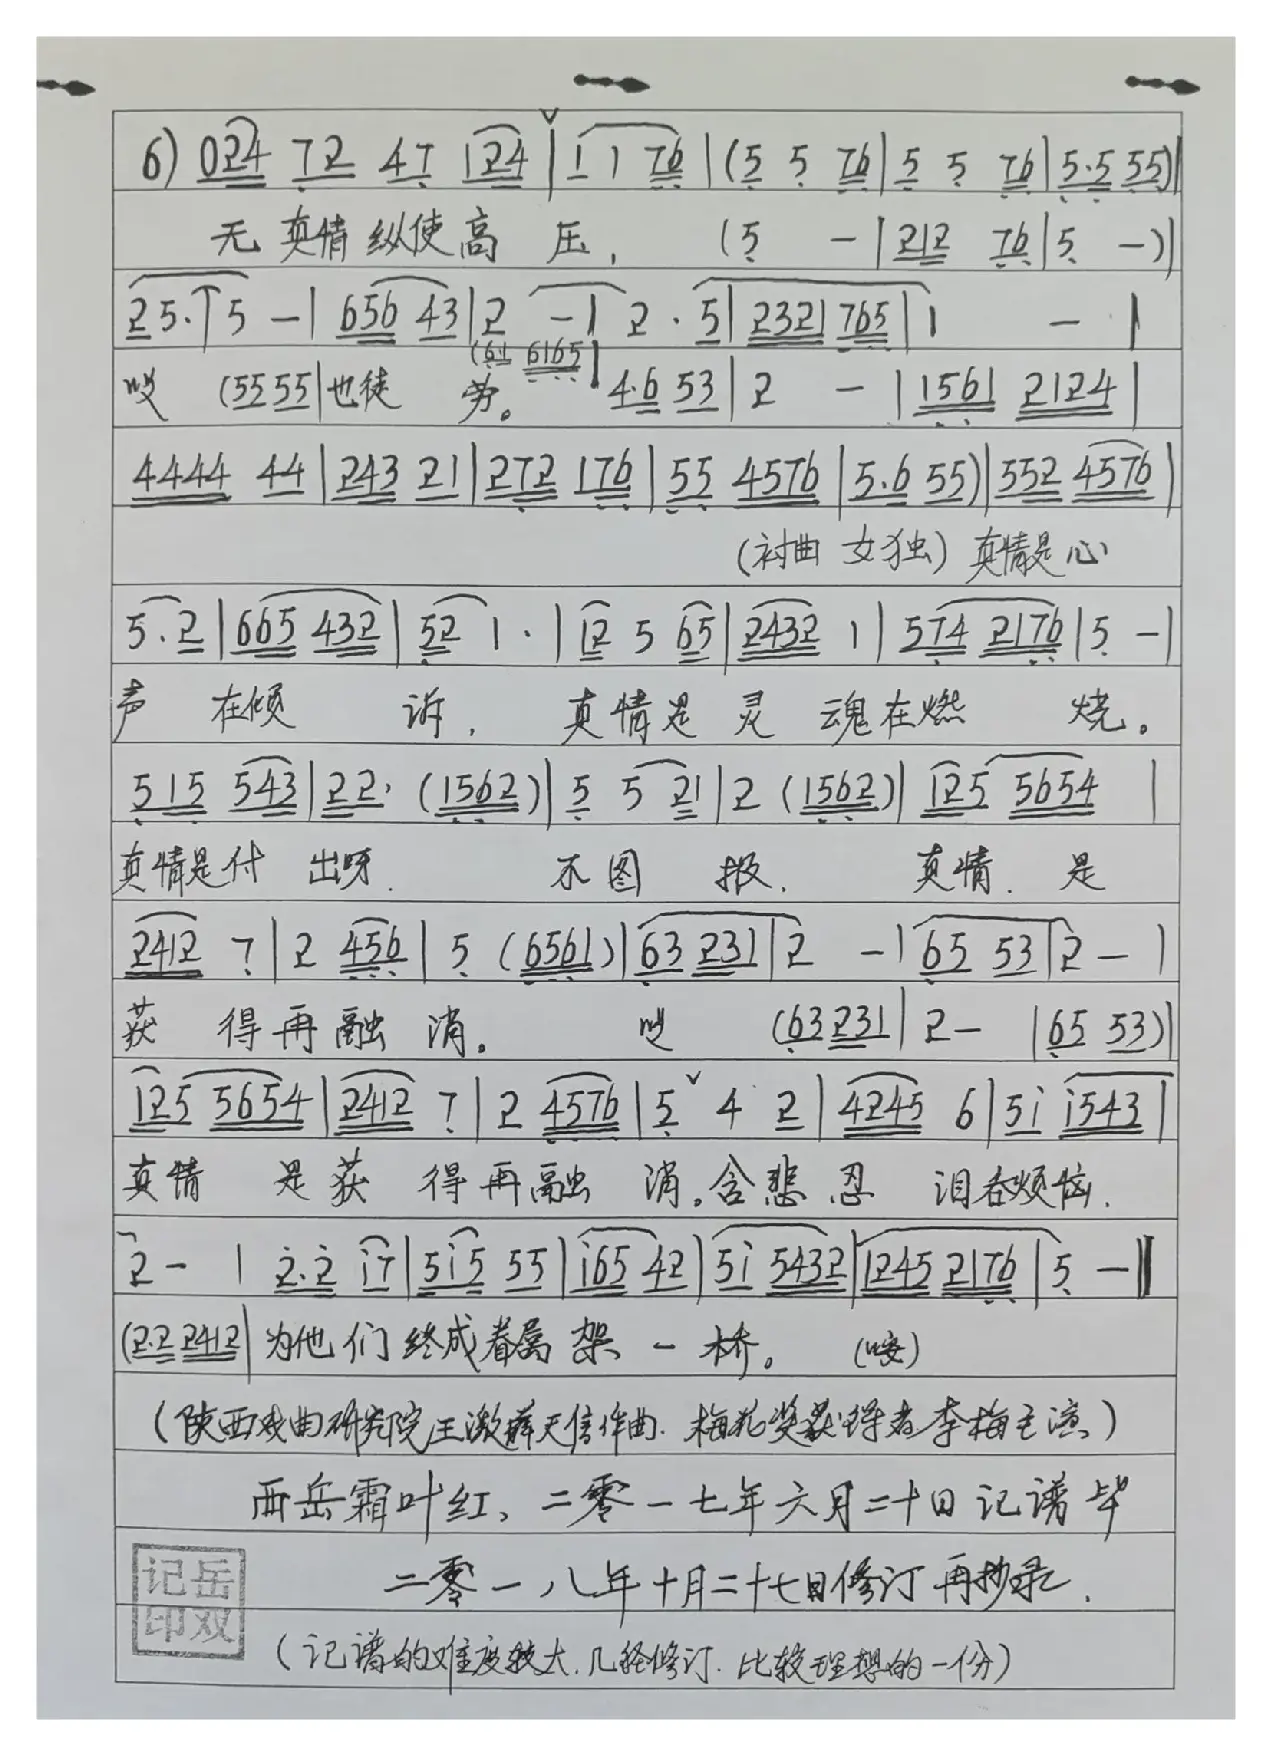 6) 024 72 47 124 | 1 1 76 | (5 5 76 | 5 5 76 | 5·5 55) |
无真情纵使高压, (5 - | 212 76 | 5 -) |
25·↑5 - | 656 43 | 2 - | 2·5 | 2321 765 | 1 - |
哎 (55 55 | 也徒劳。 (61 6165 | 4·6 53 | 2 - | 1561 2124 |
4444 44 | 243 21 | 272 176 | 55 4576 | 5·6 55) | 552 4576 |
(衬曲 女独) 真情是心
5·2 | 665 432 | 52 1· | 12 5 65 | 2432 1 | 574 2176 | 5 - |
声在倾诉, 真情是灵魂在燃烧。
515 543 | 22· (1562) | 5 5 21 | 2 (1562) | 125 5654 |
真情是付出呀. 不图报. 真情.是
2412 7 | 2 456 | 5 (6561) | 63 231 | 2 - | 65 53 | 2 - |
获得再融消。 哎 (63 231 | 2 - | 65 53) |
125 5654 | 2412 7 | 2 4576 | 5 ˇ 4 2 | 4245 6 | 5i i543 |
真情是获得再融消。含悲忍泪吞烦恼.
2 - | 2·2 i7 | 5i5 55 | i65 42 | 5i 5432 | 1245 2176 | 5 - ‖
(2·2 2412 | 为他们终成眷属架一桥。 (嗳)
(陕西戏曲研究院王激薛天信作曲. 梅花奖获得者李梅主演)
西岳霜叶红、二零一七年六月二十日记谱毕
二零一八年十月二十七日修订再抄录.
记岳
印双
(记谱的难度较大.几经修订.比较理想的一份)